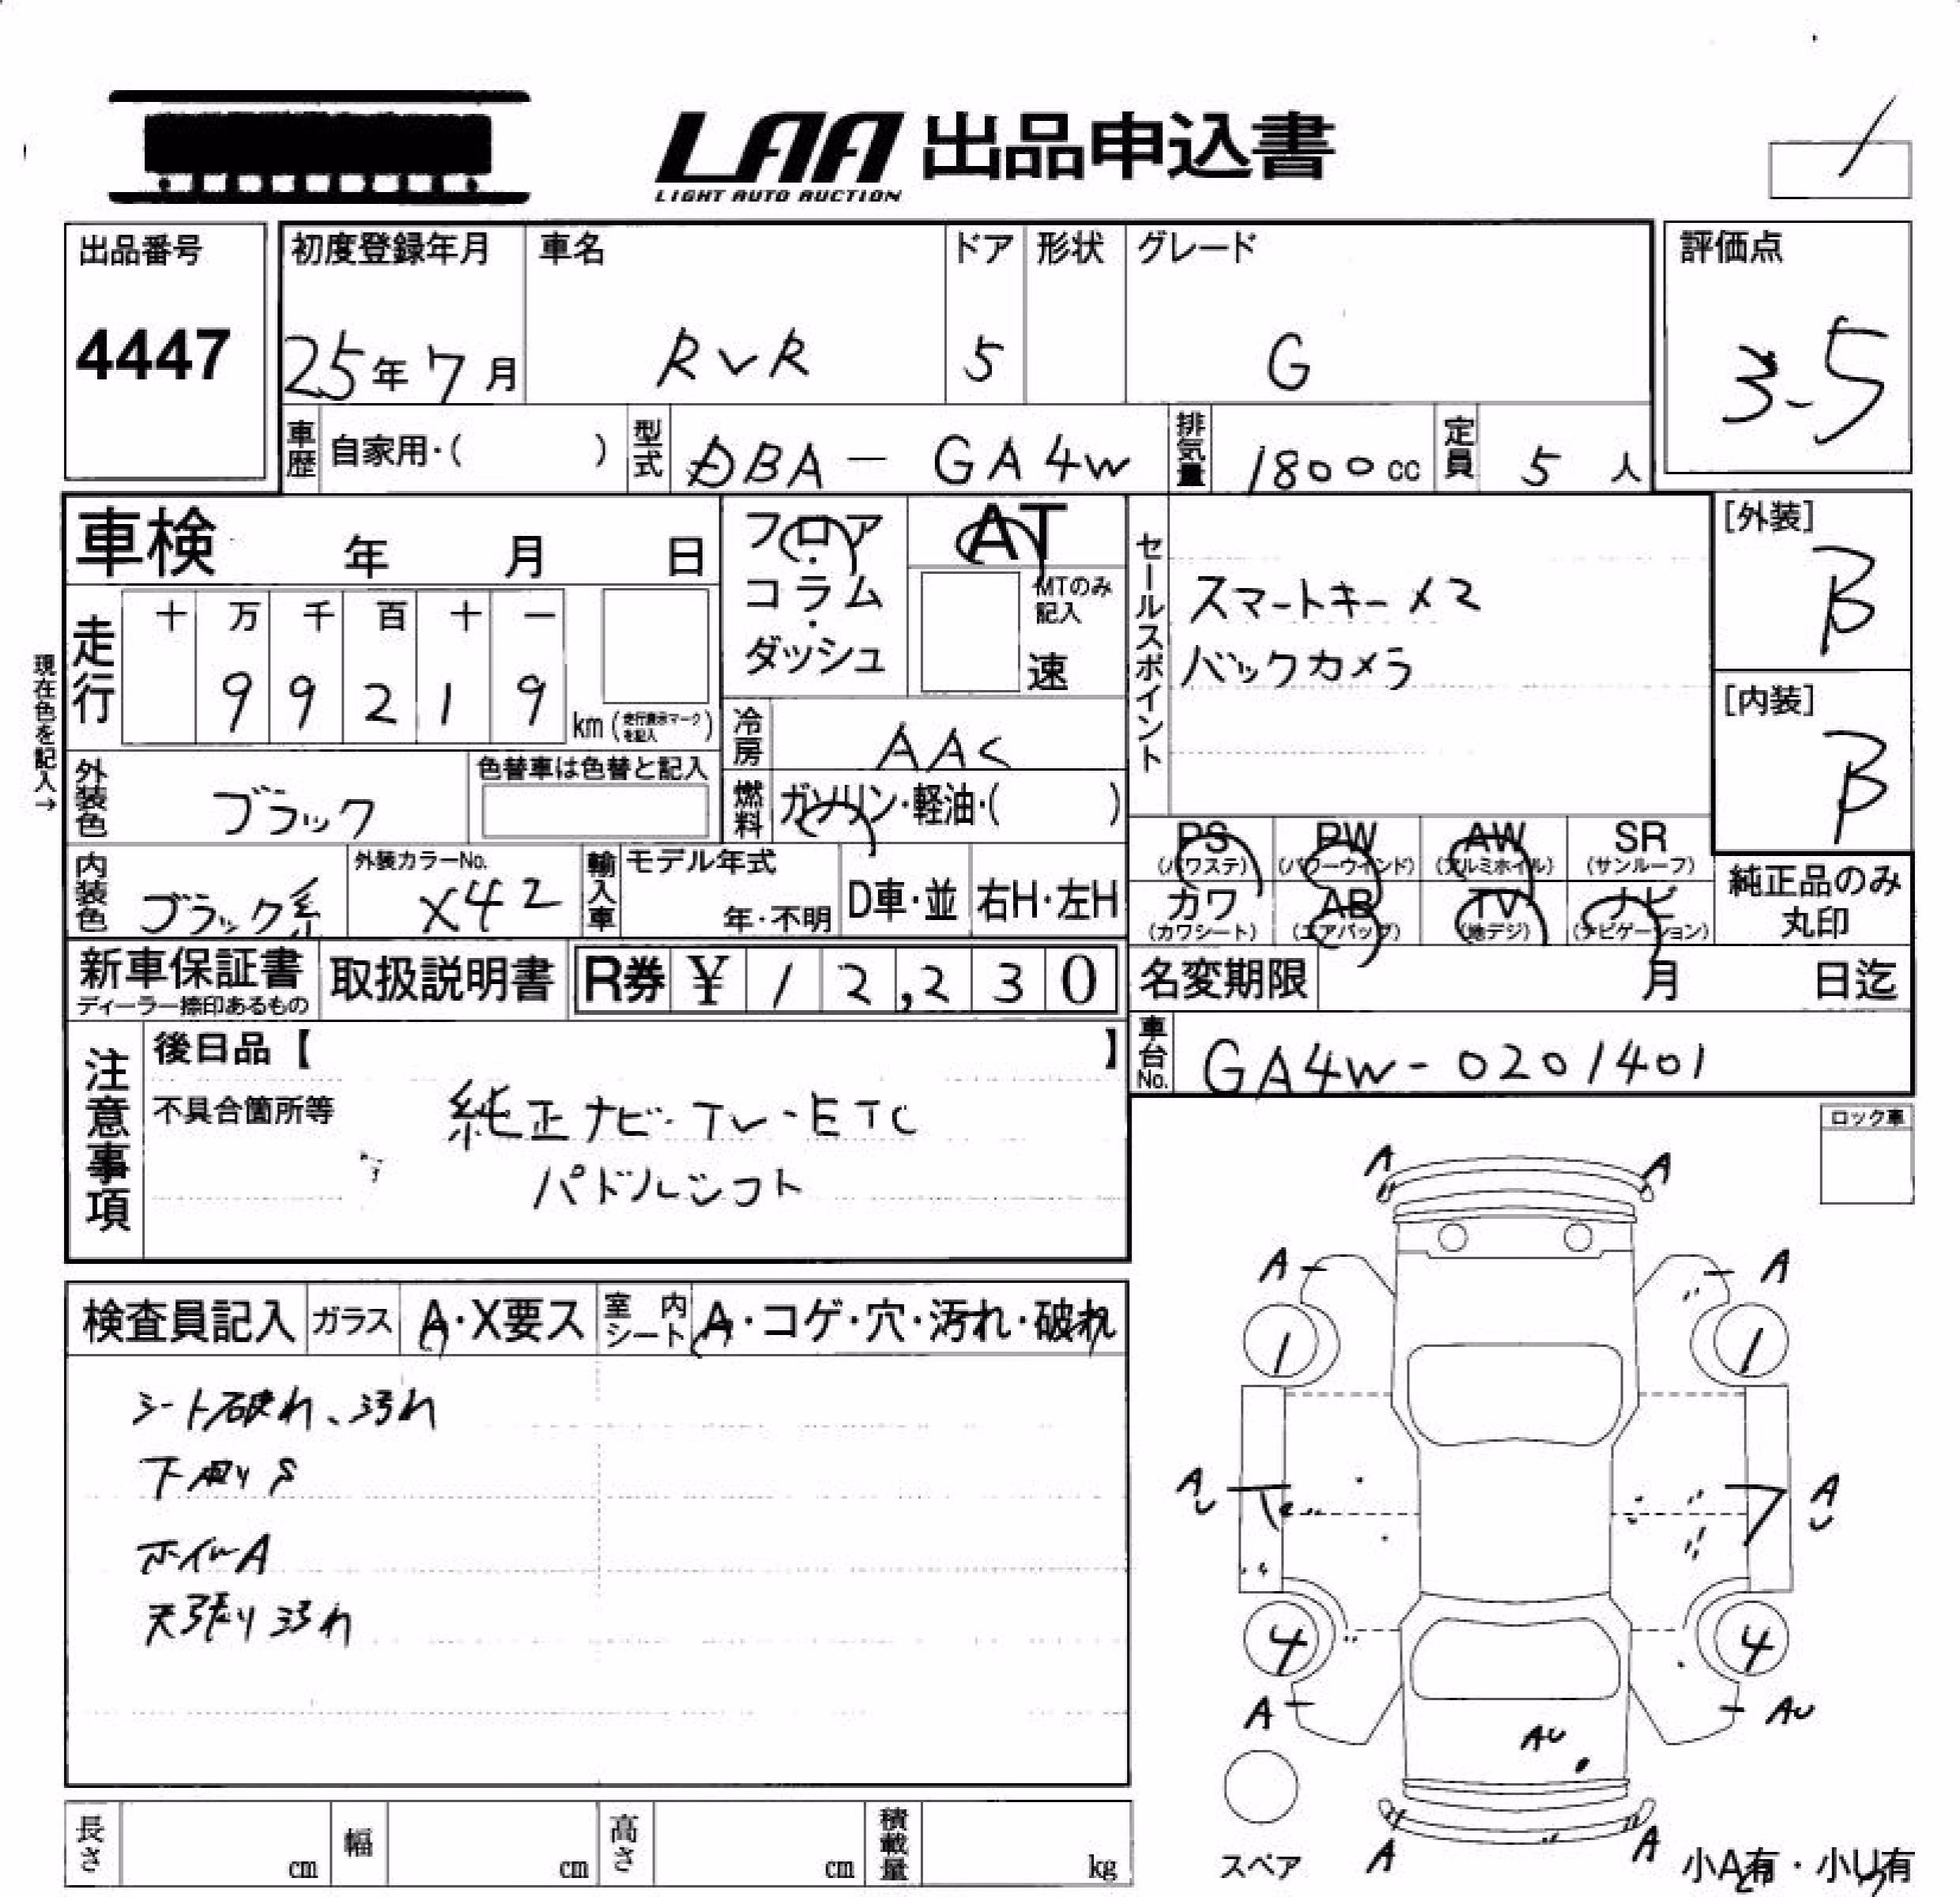 LAA 出品申込書
LIGHT AUTO AUCTION
出品番号
4447
初度登録年月
25年7月
車名
RVR
ドア
5
形状
グレード
G
評価点
3.5
車歴 自家用・( )
型式 DBA - GA4W
排気量 1800cc
定員 5人
車検 年 月 日
フロア・コラム・ダッシュ
AT
MTのみ記入
速
セールスポイント
スマートキー×2
バックカメラ
[外装]
B
[内装]
B
現在色を記入→
走行
十 万 千 百 十 一
9 9 2 1 9
km (走行表示マークを記入)
冷房 AAC
燃料 ガソリン・軽油・( )
外装色 ブラック
色替車は色替と記入
内装色 ブラック系
外装カラーNo.
X42
輸入車 モデル年式
年・不明
D車・並
右H・左H
PS (パワステ)
PW (パワーウインド)
AW (アルミホイル)
SR (サンルーフ)
カワ (カワシート)
AB (エアバッグ)
TV (地デジ)
ナビ (ナビゲーション)
純正品のみ
丸印
新車保証書
ディーラー捺印あるもの
取扱説明書
R券 ¥12,230
名変期限 月 日迄
車台No. GA4W-0201401
注意事項
後日品【 】
不具合箇所等
純正ナビ・TV・ETC
パドルシフト
ロック車
検査員記入
ガラス A・X要ス
室内シート A・コゲ・穴・汚れ・破れ
シート破れ、汚れ
下廻りS
ホイルA
天張り汚れ
A A
A A
1 1
AU AU
4 4
A AU
AU
A A
スペア
小A有・小U有
長さ cm
幅 cm
高さ cm
積載量 kg